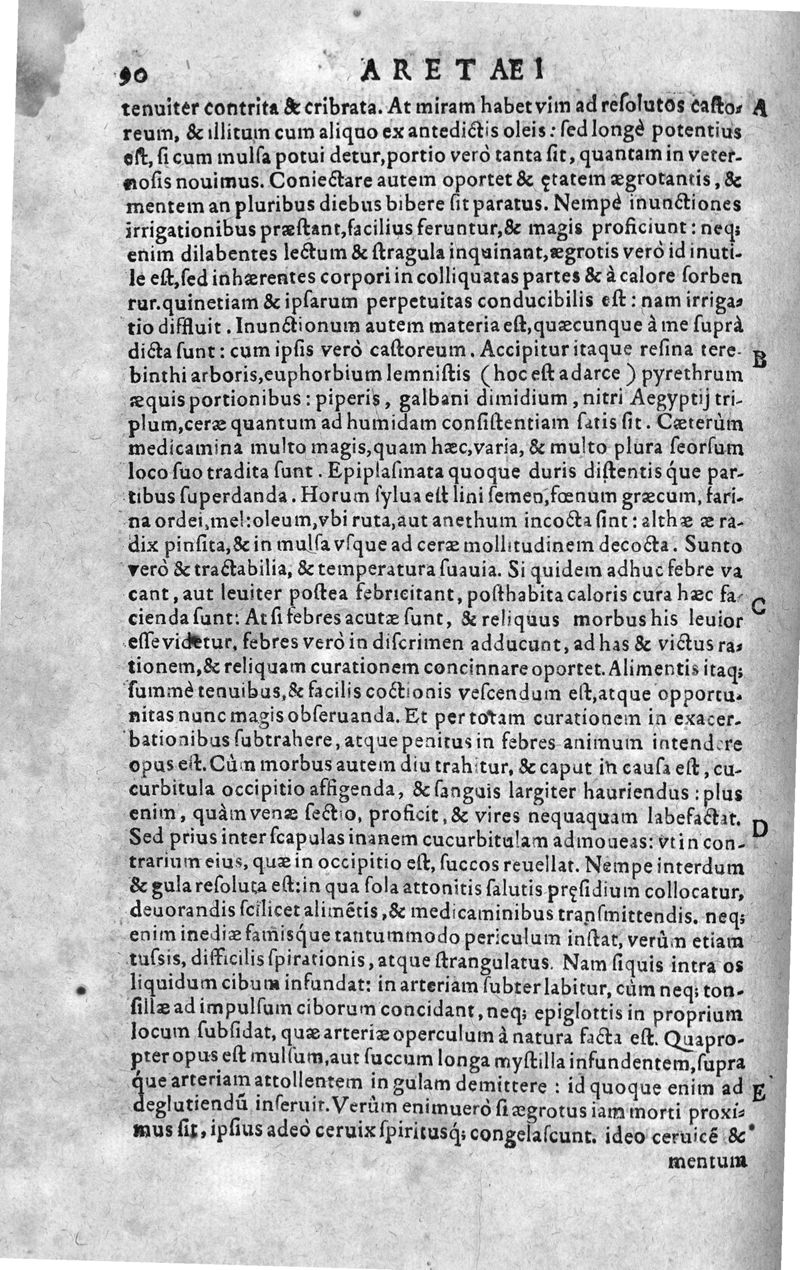 90 ARETAEI
tenuiter contrita & cribrata. At miram habet vim ad resolutos casto- A
reum, & illitum cum aliquo ex antedictis oleis: sed longè potentius
est, si cum mulsa potui detur, portio verò tanta sit, quantam in veter-
nosis nouimus. Coniectare autem oportet & ętatem ægrotantis, &
mentem an pluribus diebus bibere sit paratus. Nempè inunctiones
irrigationibus præstant, facilius feruntur, & magis proficiunt: neq;
enim dilabentes lectum & stragula inquinant, ægrotis verò id inuti-
le est, sed inhærentes corpori in colliquatas partes & à calore sorben
tur. quinetiam & ipsarum perpetuitas conducibilis est: nam irriga-
tio diffluit. Inunctionum autem materia est, quæcunque à me suprà
dicta sunt: cum ipsis verò castoreum. Accipitur itaque resina tere- B
binthi arboris, euphorbium lemnistis (hoc est adarce) pyrethrum
æquis portionibus: piperis, galbani dimidium, nitri Aegyptij tri-
plum, ceræ quantum ad humidam consistentiam satis sit. Cæterùm
medicamina multo magis, quam hæc, varia, & multo plura seorsum
loco suo tradita sunt. Epiplasmata quoque duris distentisque par-
tibus superdanda. Horum sylua est lini semen, fœnum græcum, fari-
na ordei, mel: oleum, vbi ruta, aut anethum incocta sint: althæ æ ra-
dix pinsita, & in mulsa vsque ad ceræ mollitudinem decocta. Sunto
verò & tractabilia, & temperatura suauia. Si quidem adhuc febre va
cant, aut leuiter postea febricitant, posthabita caloris cura hæc fa- C
cienda sunt: At si febres acutæ sunt, & reliquus morbus his leuior
esse videtur, febres verò in discrimen adducunt, ad has & victus ra-
tionem, & reliquam curationem concinnare oportet. Alimentis itaq;
summè tenuibus, & facilis coctionis vescendum est, atque opportu-
nitas nunc magis obseruanda. Et per totam curationem in exacer-
bationibus subtrahere, atque penitus in febres animum intendere
opus est. Cùm morbus autem diu trahitur, & caput in causa est, cu-
curbitula occipitio affigenda, & sanguis largiter hauriendus: plus
enim, quàm venæ sectio, proficit, & vires nequaquam labefactat. D
Sed prius inter scapulas inanem cucurbitulam admoueas: vt in con-
trarium eius, quæ in occipitio est, succos reuellat. Nempe interdum
& gula resoluta est: in qua sola attonitis salutis pręsidium collocatur,
deuorandis scilicet alimētis, & medicaminibus transmittendis. neq;
enim inediæ famisque tantummodo periculum instat, verùm etiam
tussis, difficilis spirationis, atque strangulatus. Nam siquis intra os
liquidum cibum infundat: in arteriam subter labitur, cùm neq; ton-
sillæ ad impulsum ciborum concidant, neq; epiglottis in proprium
locum subsidat, quæ arteriæ operculum à natura facta est. Quapro-
pter opus est mulsum, aut succum longa mystilla infundentem, supra
que arteriam attollentem in gulam demittere: id quoque enim ad E
deglutiendū inseruit. Verùm enimuerò si ægrotus iam morti proxi-
mus sit, ipsius adeò ceruix spiritusq; congelascunt. ideo ceruicē &
mentum